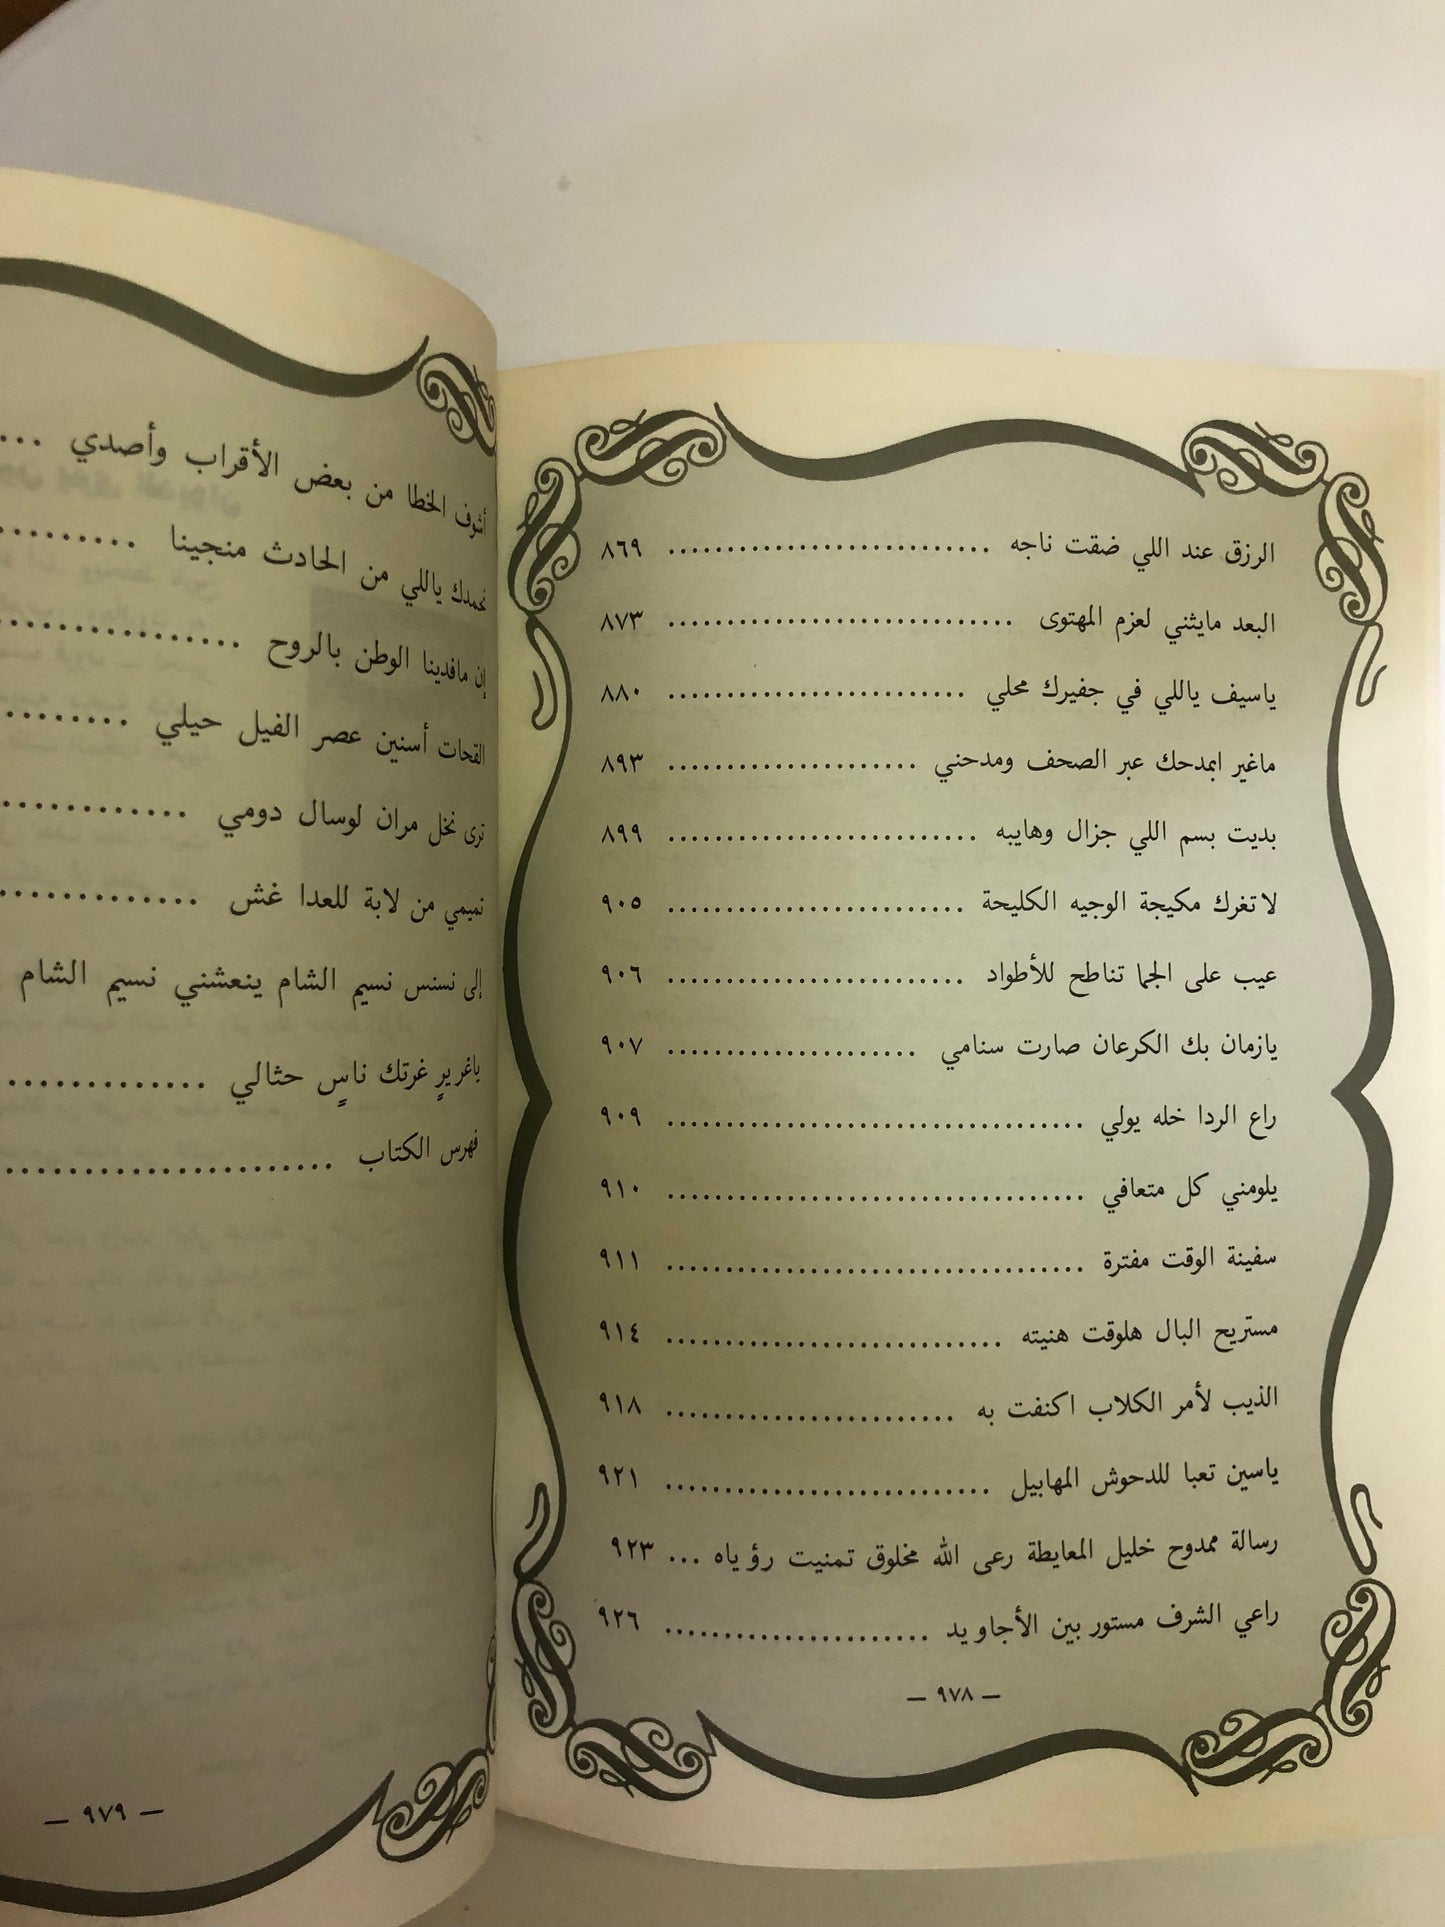 الرزق عند اللي ضقت ناجه ............................ ٨٦٩
البعد مايثني لعزم المهتوى .............................. ٨٧٣
ياسيف ياللي في جفيرك محلي .......................... ٨٨٠
ماغير ابمدحك عبر الصحف ومدحني ...................... ٨٩٣
بديت بسم اللي جزال وهايبه ........................... ٨٩٩
لا تغرك مكيجة الوجيه الكليحة .......................... ٩٠٥
عيب على الجما تناطح للأطواد .......................... ٩٠٦
يازمان بك الكرعان صارت سنامي ...................... ٩٠٧
راع الردا خله يولي .................................... ٩٠٩
يلومني كل متعافي .................................... ٩١٠
سفينة الوقت مفترة .................................... ٩١١
مستريح البال هلوقت هنيته ............................. ٩١٤
الذيب لأمر الكلاب اكنفت به ......................... ٩١٨
ياسين تعبا للدحوش المهابيل ............................ ٩٢١
رسالة ممدوح خليل المعايطة رعى الله مخلوق تمنيت رؤياه ... ٩٢٣
راعي الشرف مستور بين الأجاويد ....................... ٩٢٦
— ٩٧٨ —
أشوف الخطا من بعض الأقراب وأصدي ...
نحمدك ياللي من الحادث منجينا .........
إن مافدينا الوطن بالروح ................
القحات أسنين عصر الفيل حيلي ........
ترى نخل مران لوسال دومي ............
نميمي من لابة للعدا غش .............
إلى نسنس نسيم الشام ينعشني نسيم الشام
ياغريرٍ غرتك ناسٍ حثالي .............
فهرس الكتاب ......................
— ٩٧٩ —